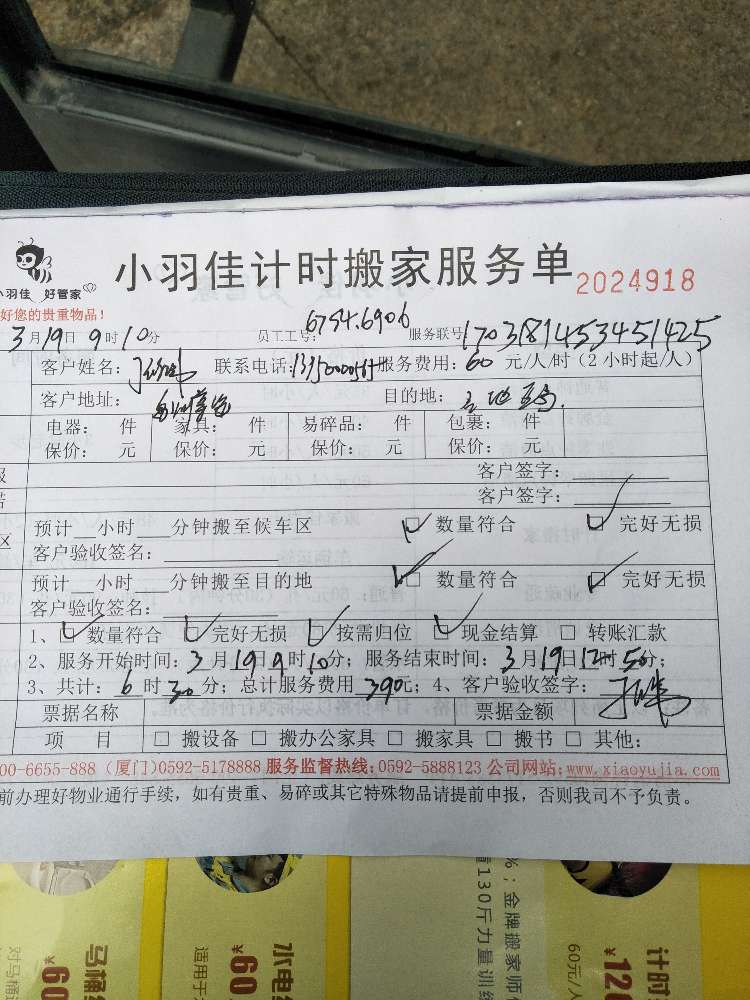 小羽佳计时搬家服务单 2024918
小羽佳 好管家
好您的贵重物品！
3月19日9时10分 员工工号：6754.6906 服务联号170318145345 1425
客户姓名： 联系电话： 服务费用：60 元/人/时（2小时起/人）
客户地址： 目的地：
电器： 件 家具： 件 易碎品： 件 包裹： 件
保价： 元 保价： 元 保价： 元 保价： 元
客户签字：
客户签字：
区 预计__小时___分钟搬至候车区 □ 数量符合 □ 完好无损
客户验收签名：
预计__小时___分钟搬至目的地 □ 数量符合 □ 完好无损
客户验收签名：
1、□ 数量符合 □ 完好无损 □ 按需归位 □ 现金结算 □ 转账汇款
2、服务开始时间：3月19日9时10分；服务结束时间：3月19日12时50分；
3、共计：6时30分；总计服务费用390元；4、客户验收签字：
票据名称 票据金额
项 目 □ 搬设备 □ 搬办公家具 □ 搬家具 □ 搬书 □ 其他：
00-6655-888（厦门）0592-5178888 服务监督热线：0592-5888123 公司网站：www.xiaoyujia.com
前办理好物业通行手续，如有贵重、易碎或其它特殊物品请提前申报，否则我司不予负责。
马桶
对马桶
¥60
水电
适用于
¥60
%；金牌搬家师
130斤力量训练
计时
60元/人
¥12